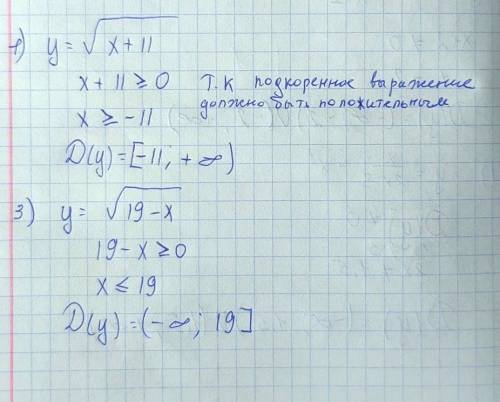 1) y = √(x + 11)
x + 11 ≥ 0 Т.К подкоренное выражение
должно быть положительным
x ≥ -11
D(y) = [-11; + ∞)
3) y = √(19 - x)
19 - x ≥ 0
x ≤ 19
D(y) = (- ∞; 19]